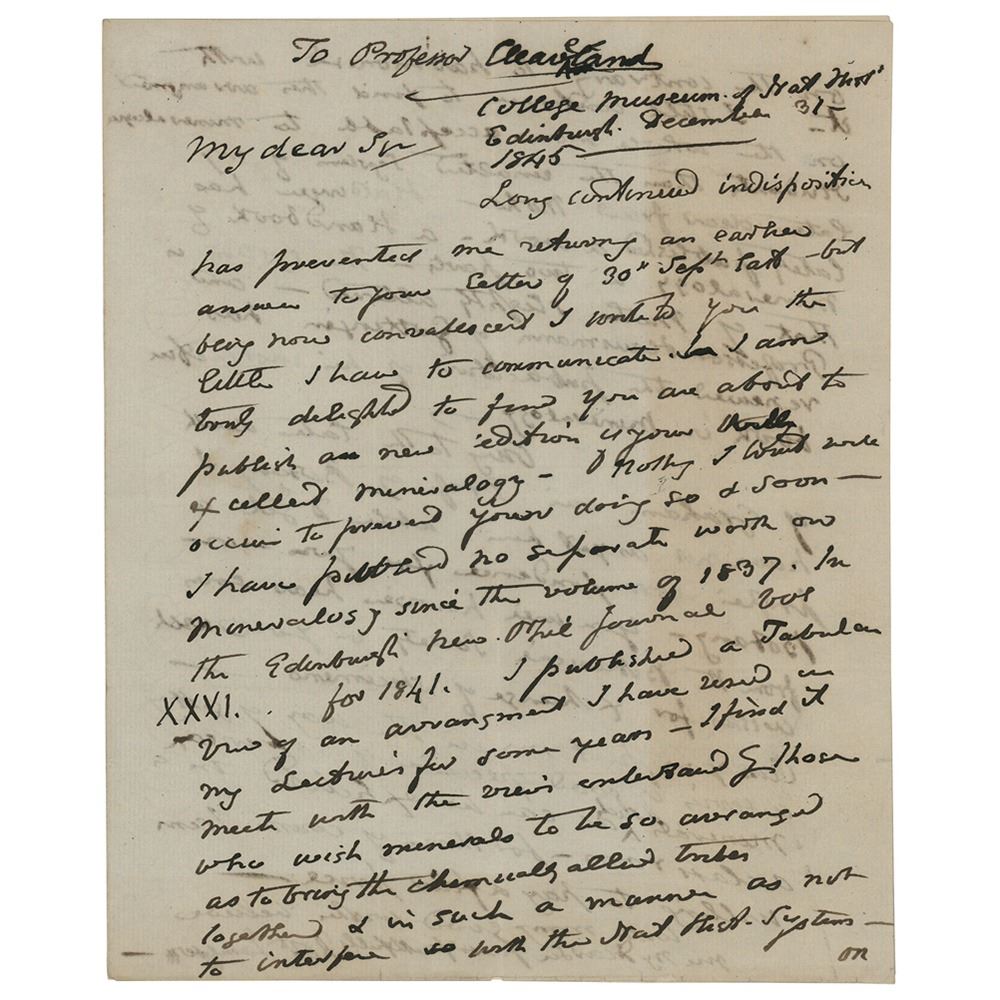 To Professor Cleaveland
College Museum of Nat Hist
Edinburgh. December 31
1845
My dear Sir
Long continued indisposition
has prevented me returning an earlier
answer to your Letter of 30th Sept Last - but
being now convalescent I write to you the
little I have to communicate. I am
truly delighted to find you are about to
publish a new edition of your really
excellent mineralogy - Nothing I trust will
occur to prevent your doing so & soon -
I have published no separate work on
Mineralogy since the volume of 1837. In
the Edinburgh New. Phil Journal Vol
XXXI. for 1841. I published a Tabular
View of an arrangment I have used in
my Lectures for some years - I find it
meets with the views entertaind by those
who wish minerals to be so arranged
as to bring the chemically allied tribes
together & in such a manner as not
to interfere so with the Nat Hist. System -
on